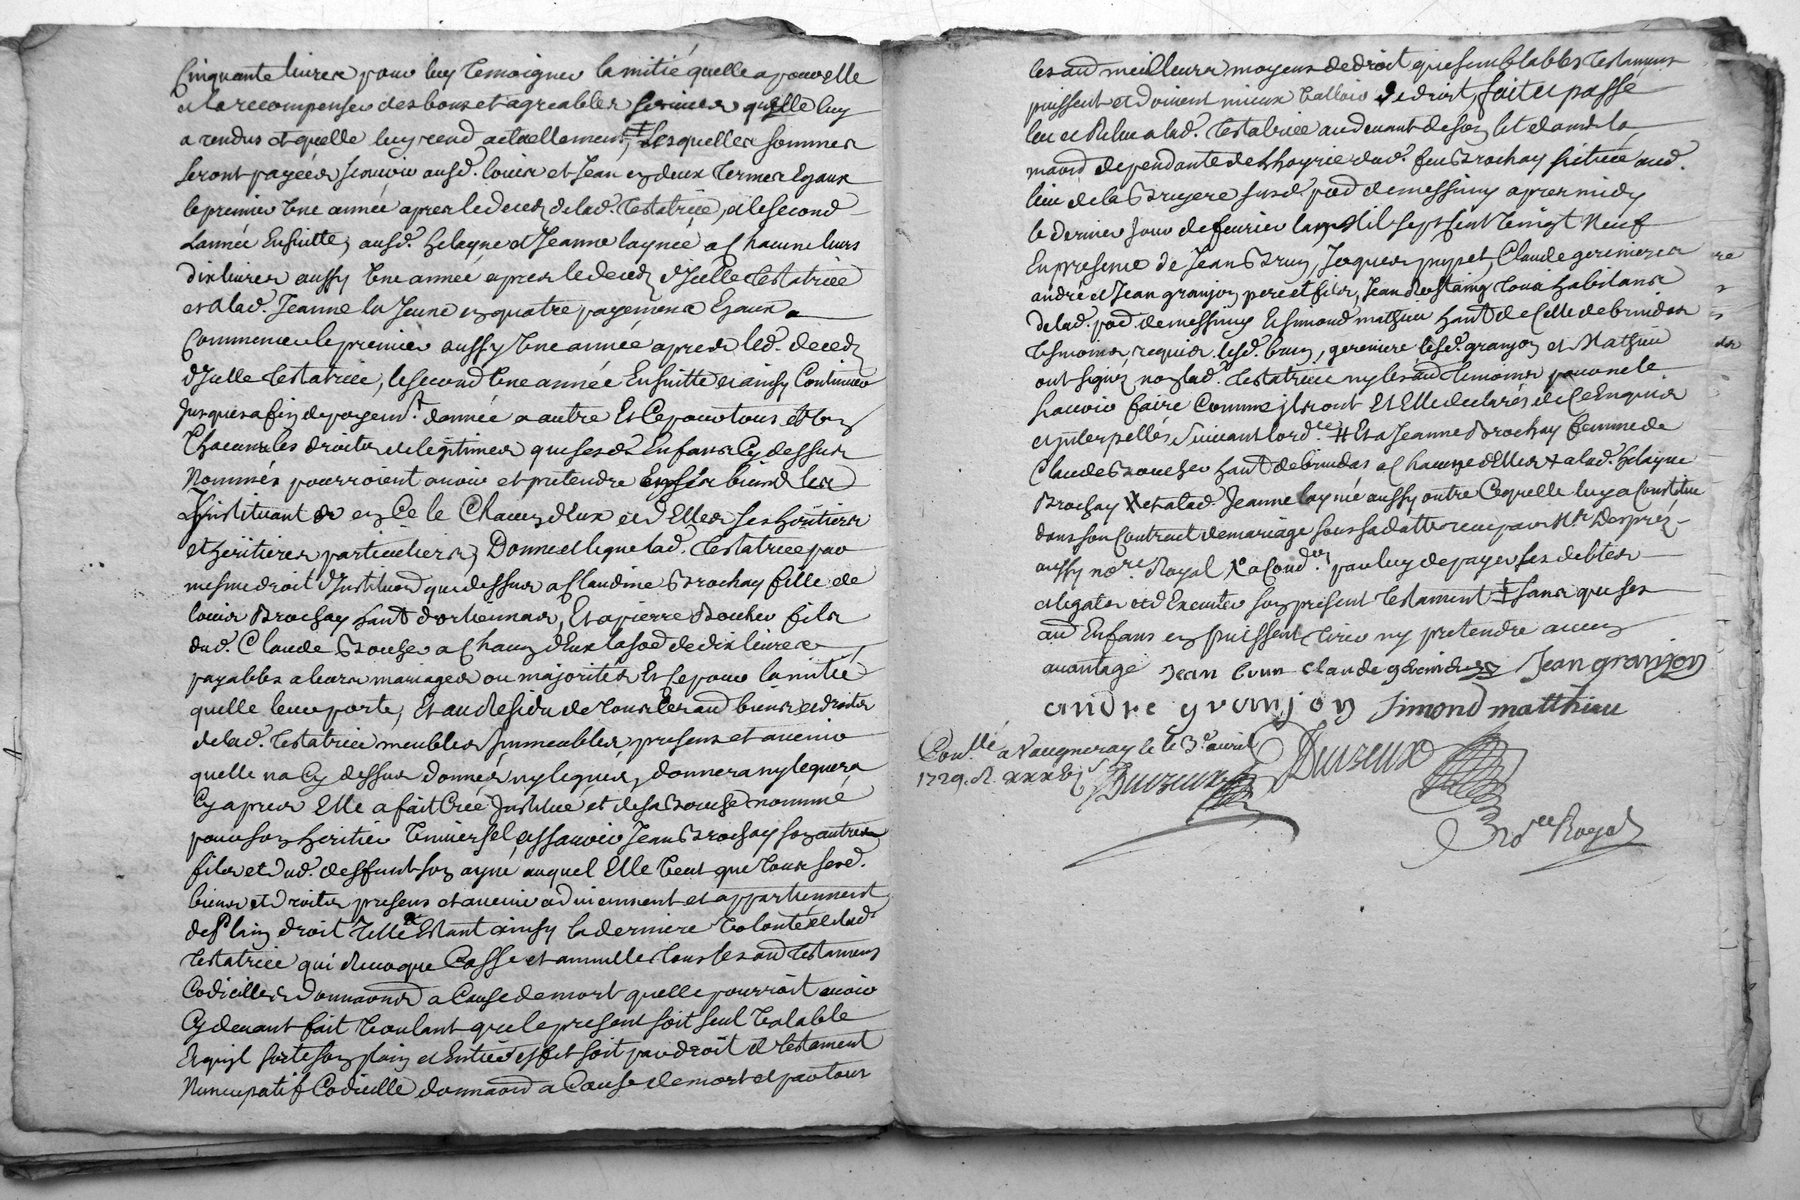 Cinquante livres pour luy temoigner lamitié quelle a pour elle
et la recompenser des bons et agreables services quelle luy
a rendus et quelle luy rend actuellement, lesquelles sommes
seront payées scavoir ausd. louis et Jean en deux termes Egaux
le premier Une année apres le deced de lad. Testatrice, et le second
Lannée Ensuitte, ausd. helayne et Jeanne laynée a Chacune leurs
dix livres aussy Une année apres le deced d'Icelle Testatrice
et a lad. Jeanne la Jeune en quatre payemens Egaux a
Commencer le premier aussy Une année apres led. deced
d'Icelle Testatrice, le second Une année Ensuitte et ainsy Continuer
Jusques a fin de payemt. dannée a autre Et Ce pour tous
Chacuns les droits et legitimes que sesd. Enfans Cy dessus
Nommés pourroient avoir et pretendre en ses biens les
Instituant en Ce le Chacun d'Eux et d'Elles ses heritiers
et heritieres particuliers, Donne et legue lad. Testatrice par
mesme droit d'Institution que dessus a Claudine Brochay fille de
louis Brochay habt. d'orlienas, Et a pierre Boucher fils
dud. Claude Boucher a Chacun d'Eux la so͂e de dix livres
payables a leurs mariages ou majorités Et Ce pour lamitié
quelle leur porte, Et au Residu de tous les aud biens et droits
de lad. Testatrice meubles Immeubles presens et avenir
quelle na Cy dessus donnés ny legués, donnera ny leguera
Cy apres Elle a fait Creé Institué et de sa bouche nommé
pour son heritier Universel assavoir Jean Brochay son autre
fils et dud. deffunt son ayné auquel Elle Veut que tous sesd.
biens et droits presens et avenir adviennent et appartiennent
de Plain droit Telle Estant ainsy la derniere Volonté de lad.
Testatrice qui revoque Casse et annulle tous les aud Testamens
Codicilles donnaons a Cause de mort quelle pourroit avoir
Cy devant fait Voulant que le present soit seul Valable
Et quil sorte son plain et Entier effet soit par droit de testament
Nuncupatif Codicille donnaon a Cause de mort et par tous
les aud meilleurs moyens de droit que semblables testamens
puissent et doivent mieux Valloir de droit, fait et passé
leu et Releu a lad. Testatrice au devant de son lit dans la
maison dependante de Lhoyrie dud. feu Brochay scituee aud.
lieu de la Bruyere susd. paed de messimy apres midy
le dernier Jour de fevrier lan mil sept Cent Vingt Neuf
En presence de Jean Brun, Jacques pupet, Claude gereiniere
andré et Jean granjon pere et fils, Jean Restaing tous habitans
de lad. paed de messimy Et simond mathieu habt. de Celle de brindas
tesmoins requis lesd. brun, gereniere lesd. granjon et Mathieu
ont signé non lad. Testatrice ny les aud temoins pour ne le
scavoir faire Comme ils ont Et Elle declarés de Ce Enquis
et Interpellés suivant lord.ce # Et a Jeanne Brochay femme de
Claude Boucher habt. de brindas a Chacune d'Elles + a lad. helayne
Brochay X et a lad. Jeanne laynée aussy outre Ce quelle luy a Constitué
dans son Contract de mariage sous sa datte receu par Mr. Desprez
aussy no.re Royal X a Cond.on par luy de payer ses debtes
et legats et d'Executer son present testament ‡ sans que ses
aud Enfans en puissent tirer ny pretendre aucun
avantage Jean brun claude gereniere Jean granjon
andre granjon Simond matthieu
Con.llé a Vaugneray le 3.e avril
1729. R. xxx
Duvzeux Duvzeux
No.re Royal